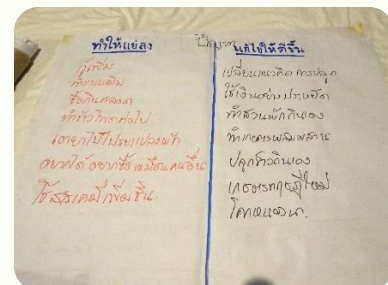 ปัญหา
ทำให้แย่ลง
กู้เพิ่ม
ทำแบบเดิม
ซื้อกินตลอด
ทำข้าวโพดต่อไป
เอายาไปโปรยแปลงผัก
อยากได้ อยากซื้อ เหมือนคนอื่น
ใช้สารเคมีเพิ่มขึ้น
แก้ไขให้ดีขึ้น
เปลี่ยนแนวคิด การปลูก
ใช้เงินอย่างประหยัด
ทำสวนผักกินเอง
ทำเกษตรผสมผสาน
ปลูกข้าวกินเอง
เกษตรทฤษฎีใหม่
โคกหนองนา.